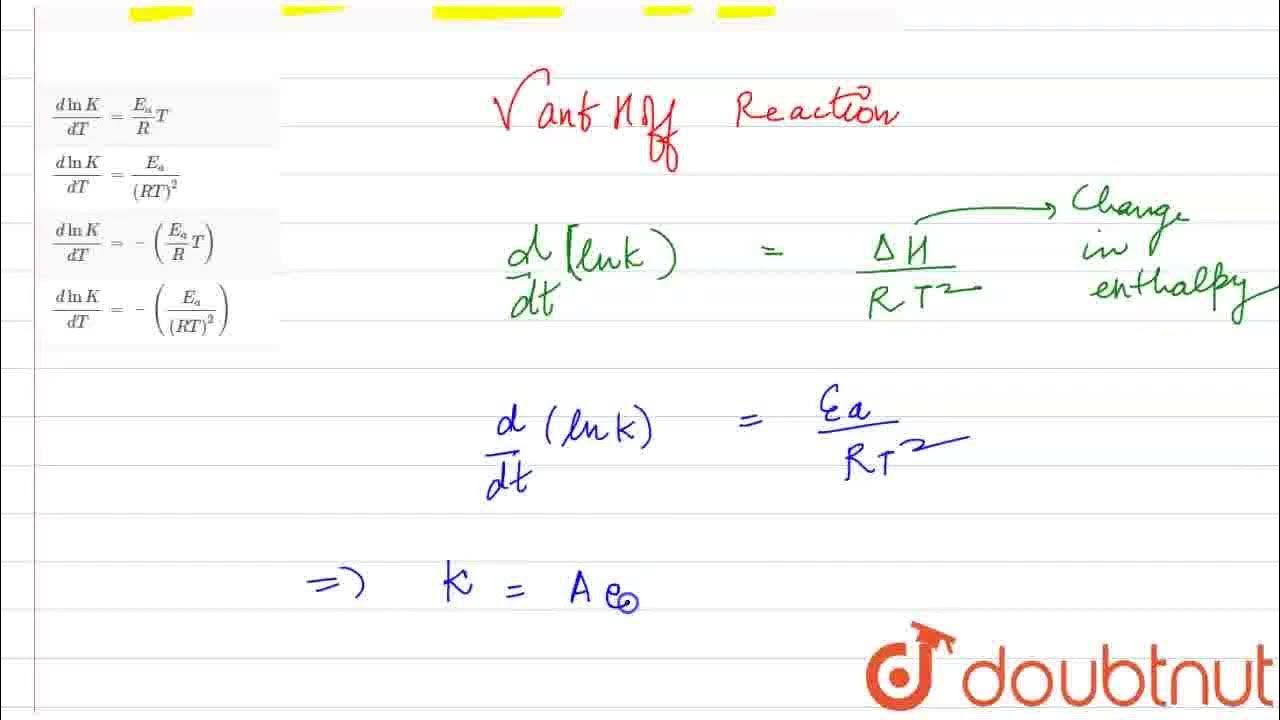 d ln K / dT = E_a / R T
d ln K / dT = E_a / (RT)²
d ln K / dT = - (E_a / R T)
d ln K / dT = - (E_a / (RT)²)
Vant Hoff Reaction
d/dt (ln k) = ΔH / RT² → Change in enthalpy
d/dt (ln k) = Ea / RT²
=> K = A e
doubtnut